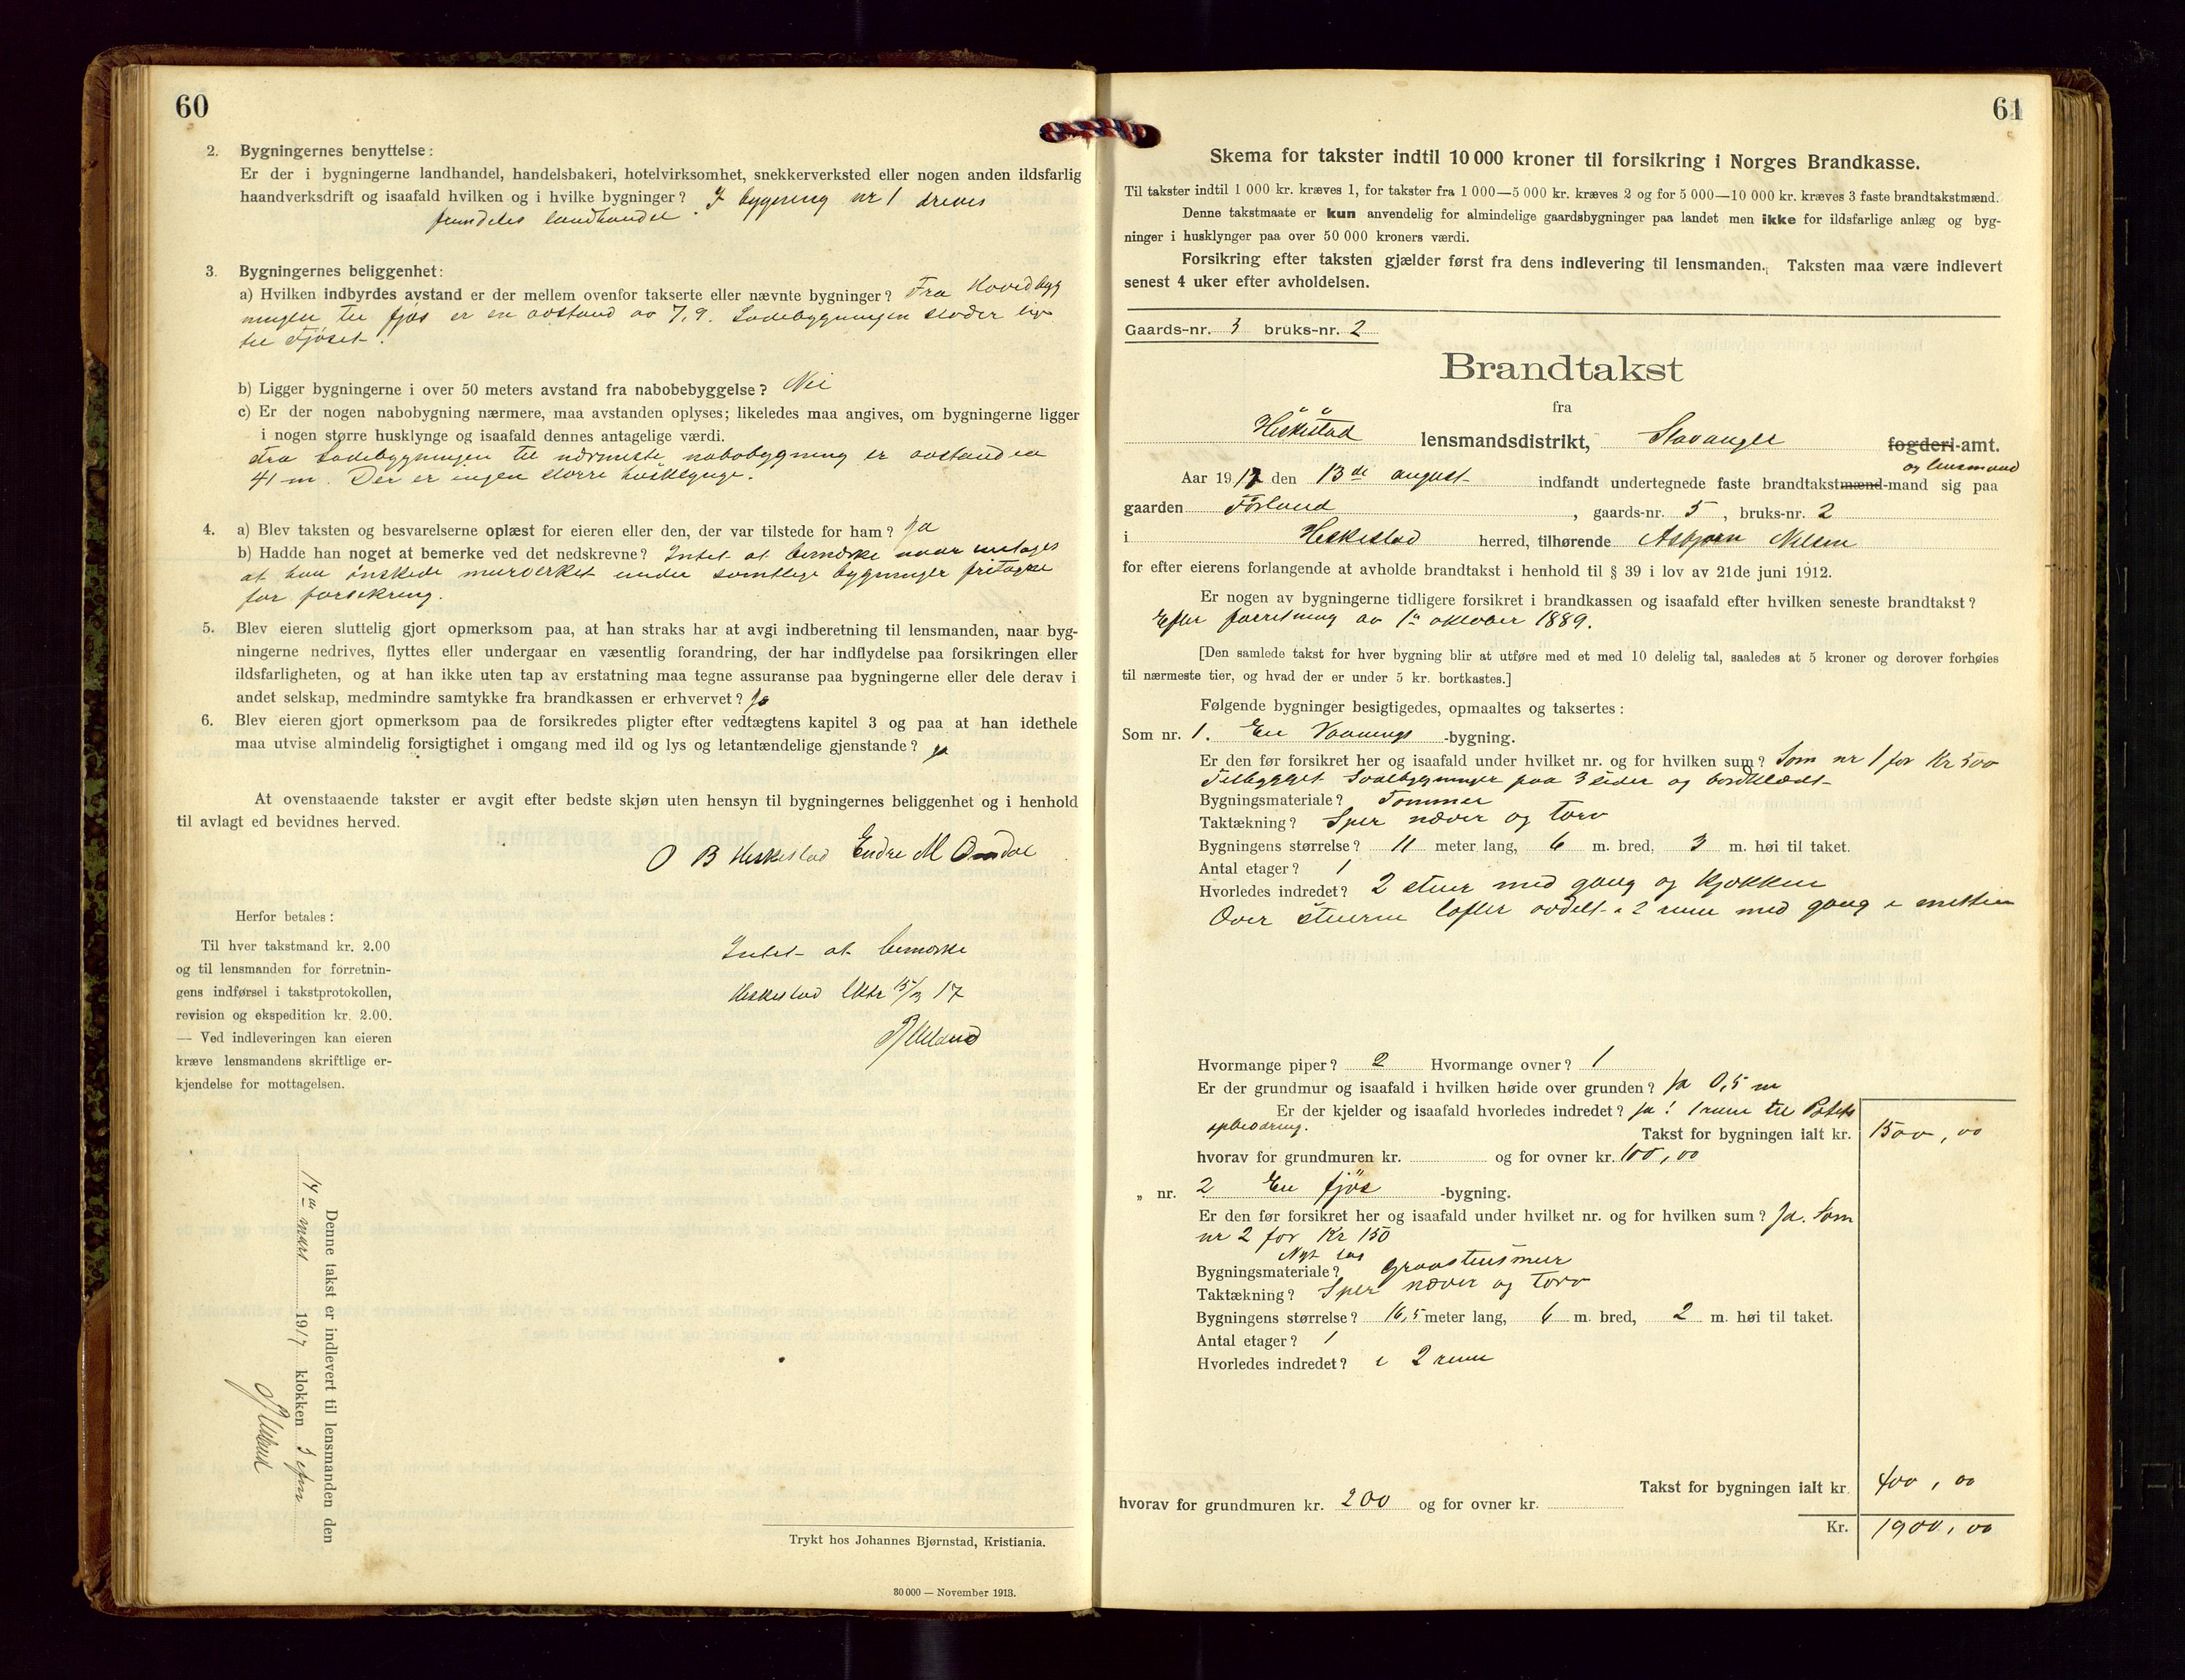 60
2. Bygningernes benyttelse:
Er der i bygningerne landhandel, handelsbakeri, hotelvirksomhet, snekkerverksted eller nogen anden ildsfarlig
haandverksdrift og isaafald hvilken og i hvilke bygninger? I bygning nr 1 drives
fremdeles landhandel.
3. Bygningernes beliggenhet:
a) Hvilken indbyrdes avstand er der mellem ovenfor takserte eller nævnte bygninger? Fra Hovedbyg
ningen til fjøs er en avstand av 7,9. Ladebygningen støder
til Fjøset.
b) Ligger bygningerne i over 50 meters avstand fra nabobebyggelse? Nei
c) Er der nogen nabobygning nærmere, maa avstanden oplyses; likeledes maa angives, om bygningerne ligger
i nogen større husklynge og isaafald dennes antagelige værdi.
Fra Ladebygningen til nærmeste nabobygning er avstanden
41 m. Der er ingen større husklynge.
4. a) Blev taksten og besvarelserne oplæst for eieren eller den, der var tilstede for ham? Ja
b) Hadde han noget at bemerke ved det nedskrevne? Intet at bemærke naar undtages
at han ønskede murverket under samtlige bygninger fritagne
for forsikring.
5. Blev eieren sluttelig gjort opmerksom paa, at han straks har at avgi indberetning til lensmanden, naar byg-
ningerne nedrives, flyttes eller undergaar en væsentlig forandring, der har indflydelse paa forsikringen eller
ildsfarligheten, og at han ikke uten tap av erstatning maa tegne assuranse paa bygningerne eller dele derav i
andet selskap, medmindre samtykke fra brandkassen er erhvervet? Ja
6. Blev eieren gjort opmerksom paa de forsikredes pligter efter vedtægtens kapitel 3 og paa at han idethele
maa utvise almindelig forsigtighet i omgang med ild og lys og letantændelige gjenstande? ja
At ovenstaaende takster er avgit efter bedste skjøn uten hensyn til bygningernes beliggenhet og i henhold
til avlagt ed bevidnes herved.
O B Heskestad Endre M Omdal
Herfor betales:
Til hver takstmand kr. 2.00
og til lensmanden for forretnin-
gens indførsel i takstprotokollen,
revision og ekspedition kr. 2.00.
— Ved indleveringen kan eieren
kræve lensmandens skriftlige er-
kjendelse for mottagelsen.
Intet at bemærke
Heskestad lktr 15/3 17
Denne takst er indlevert til lensmanden den
14de mars 1917 klokken 3 efm
Trykt hos Johannes Bjørnstad, Kristiania.
30 000 — November 1913.
61
Skema for takster indtil 10 000 kroner til forsikring i Norges Brandkasse.
Til takster indtil 1 000 kr. kræves 1, for takster fra 1 000—5 000 kr. kræves 2 og for 5 000—10 000 kr. kræves 3 faste brandtakstmænd.
Denne takstmaate er kun anvendelig for almindelige gaardsbygninger paa landet men ikke for ildsfarlige anlæg og byg-
ninger i husklynger paa over 50 000 kroners værdi.
Forsikring efter taksten gjælder først fra dens indlevering til lensmanden. Taksten maa være indlevert
senest 4 uker efter avholdelsen.
Gaards-nr. 3 bruks-nr. 2
Brandtakst
fra
Heskestad lensmandsdistrikt, Stavanger fogderi-amt.
og lensmand
Aar 1917 den 13de august indfandt undertegnede faste brandtakstmænd-mand sig paa
gaarden Førland, gaards-nr. 5, bruks-nr. 2
i Heskestad herred, tilhørende Asbjørn Nilsen
for efter eierens forlangende at avholde brandtakst i henhold til § 39 i lov av 21de juni 1912.
Er nogen av bygningerne tidligere forsikret i brandkassen og isaafald efter hvilken seneste brandtakst?
Efter forretning av 1ste oktober 1889.
[Den samlede takst for hver bygning blir at utføre med et med 10 delelig tal, saaledes at 5 kroner og derover forhøies
til nærmeste tier, og hvad der er under 5 kr. bortkastes.]
Følgende bygninger besigtigedes, opmaaltes og taksertes:
Som nr. 1. En Vaanings-bygning.
Er den før forsikret her og isaafald under hvilket nr. og for hvilken sum? Som nr 1 for Kr 500
Tilbygget Svalbygninger paa 3 sider og bordklædt
Bygningsmateriale? Tømmer
Taktækning? Sper næver og torv
Bygningens størrelse? 11 meter lang, 6 m. bred, 3 m. høi til taket.
Antal etager? 1
Hvorledes indredet? 2 stuer med gang og kjøkken
Over stuerne lofter avdelt i 2 rum med gang i mitten
Hvormange piper? 2 Hvormange ovner? 1
Er der grundmur og isaafald i hvilken høide over grunden? Ja 0,5 m
Er der kjelder og isaafald hvorledes indredet? ja! 1 rum til Potet
opbevaring.
Takst for bygningen ialt kr. 1500,00
hvorav for grundmuren kr. og for ovner kr. 100,00
„ nr. 2 En fjøs-bygning.
Er den før forsikret her og isaafald under hvilket nr. og for hvilken sum? Ja. Som
nr 2 for Kr 150
Nyt tag
Bygningsmateriale? Graastensmur
Taktækning? Sper næver og torv
Bygningens størrelse? 16,5 meter lang, 6 m. bred, 2 m. høi til taket.
Antal etager? 1
Hvorledes indredet? i 2 rum
Takst for bygningen ialt kr. 400,00
hvorav for grundmuren kr. 200 og for ovner kr.
Kr. 1900,00